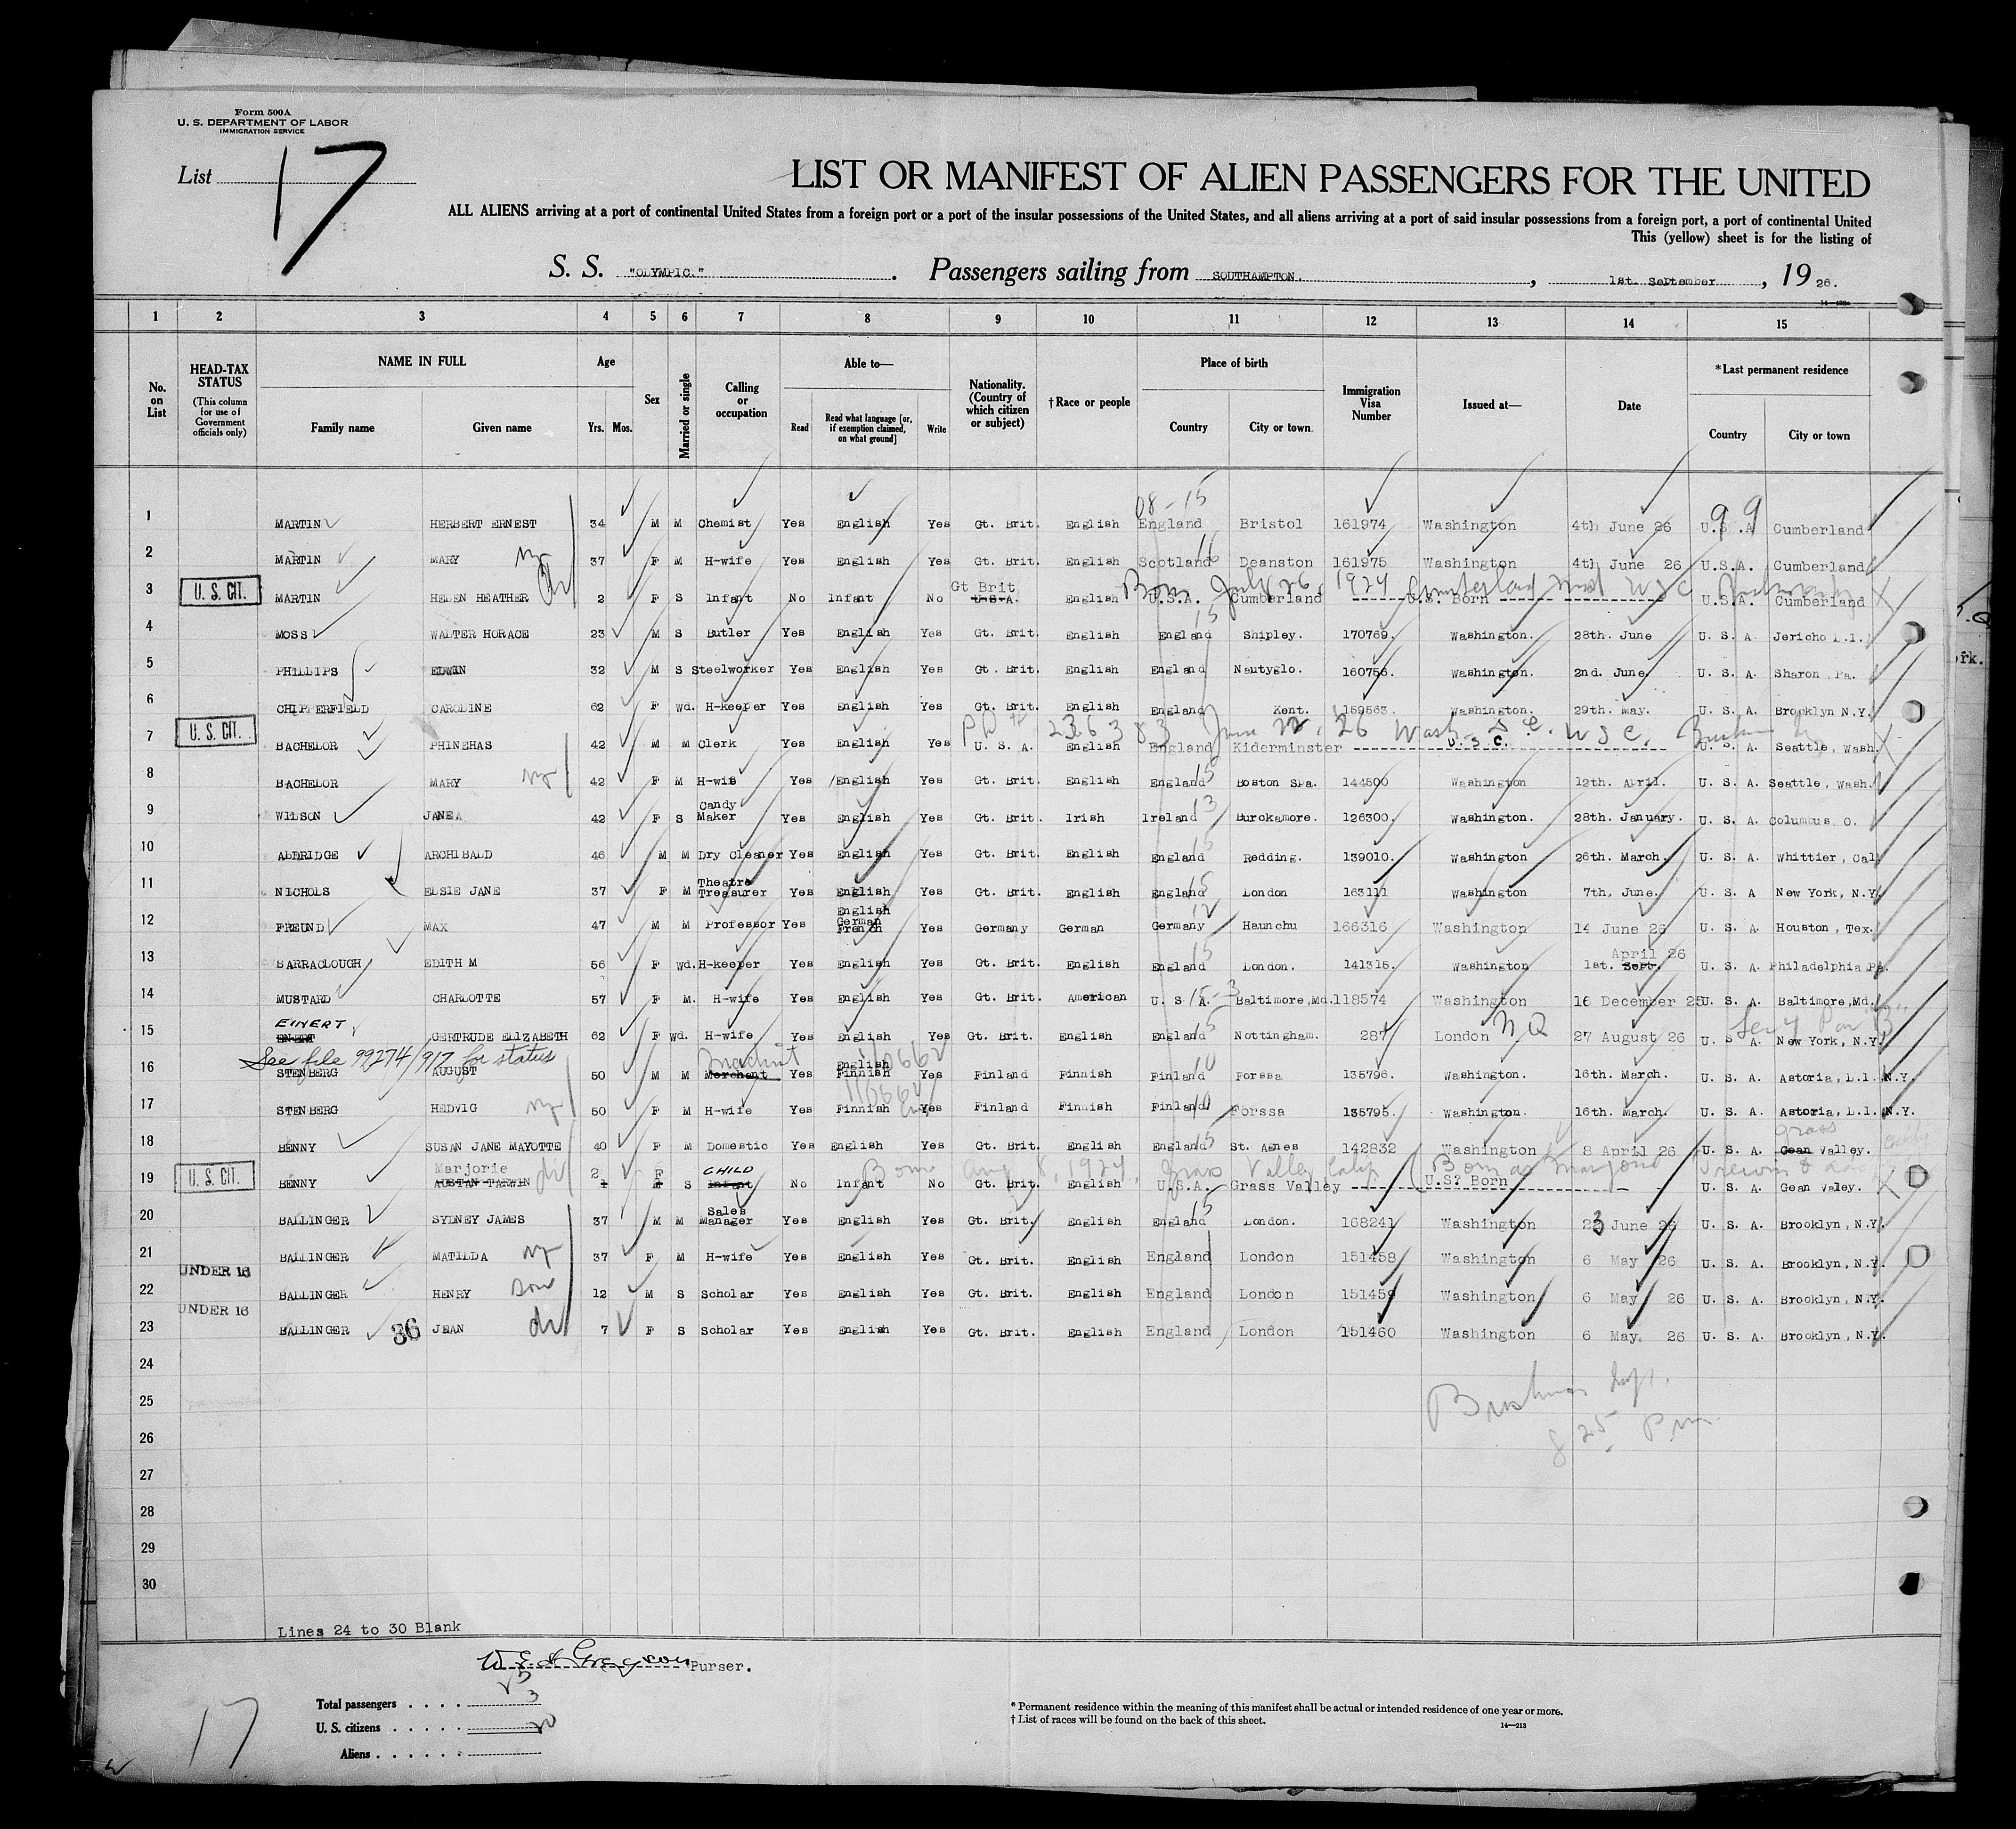 Form 500A
U. S. DEPARTMENT OF LABOR
IMMIGRATION SERVICE
List 17
LIST OR MANIFEST OF ALIEN PASSENGERS FOR THE UNITED
ALL ALIENS arriving at a port of continental United States from a foreign port or a port of the insular possessions of the United States, and all aliens arriving at a port of said insular possessions from a foreign port, a port of continental United
This (yellow) sheet is for the listing of
S. S. "OLYMPIC." . Passengers sailing from SOUTHAMPTON. , 1st. September , 19 26.
1 2 3 4 5 6 7 8 9 10 11 12 13 14 15
No. on List HEAD-TAX STATUS (This column for use of Government officials only) NAME IN FULL Family name Given name Age Yrs. Mos. Sex Married or single Calling or occupation Able to— Read Read what language [or, if exemption claimed, on what ground] Write Nationality. (Country of which citizen or subject) †Race or people Place of birth Country City or town Immigration Visa Number Issued at— Date *Last permanent residence Country City or town
08-15 99
1 MARTIN HERBERT ERNEST 34 M M Chemist Yes English Yes Gt. Brit. English England Bristol 161974 Washington 4th June 26 U.S.A. Cumberland
2 MARTIN MARY 37 F M H-wife Yes English Yes Gt. Brit. English Scotland Deanston 161975 Washington 4th June 26 U.S.A. Cumberland
Gt Brit Born July 26, 1924 Cumberland
3 U. S. CIT. MARTIN HELEN HEATHER 2 F S Infant No Infant No U.S.A. English U.S.A. Cumberland U.S. Born U.S.A. Cumberland
4 MOSS WALTER HORACE 23 M S Butler Yes English Yes Gt. Brit. English England Shipley. 170769. Washington. 28th. June U. S. A. Jericho L.I.
5 PHILLIPS EDWIN 32 M S Steelworker Yes English Yes Gt. Brit. English England Nantyglo. 160756. Washington. 2nd. June. U. S. A. Sharon Pa.
6 CHIPPERFIELD CAROLINE 62 F Wd. H-keeper Yes English Yes Gt. Brit. English England Kent. 159563. Washington. 29th. May. U. S. A. Brooklyn N.Y.
PP # 236383 June 22, 26 Wash. D.C. USC.
7 U. S. CIT. BACHELOR PHINEHAS 42 M M Clerk Yes English Yes U. S. A. English England Kiderminster U. S. C. U. S. A. Seattle, Wash.
8 BACHELOR MARY 42 F M H-wife Yes English Yes Gt. Brit. English England Boston Spa. 144500 Washington 12th. April. U. S. A. Seattle, Wash.
9 WILSON JANE A 42 F S Candy Maker Yes English Yes Gt. Brit. Irish Ireland Burckamore. 126300. Washington. 28th. January. U. S. A. Columbus O.
10 ALDRIDGE ARCHIBALD 46 M M Dry Cleaner Yes English Yes Gt. Brit. English England Redding. 139010. Washington 26th. March. U. S. A. Whittier, Cal.
11 NICHOLS ELSIE JANE 37 F M Theatre Treasurer Yes English Yes Gt. Brit. English England London 163111 Washington 7th. June. U. S. A New York, N.Y.
12 FREUND MAX 47 M M Professor Yes English German French Yes Germany German Germany Haunchu 166316 Washington 14 June 26 U. S. A. Houston, Tex.
13 BARRACLOUGH EDITH M 56 F Wd. H-keeper Yes English Yes Gt. Brit. English England London. 141315. Washington 1st. Sept. April 26 U. S. A. Philadelphia Pa.
14 MUSTARD CHARLOTTE 57 F M. H-wife Yes English Yes Gt. Brit. American U. S. A. Baltimore, Md. 118574 Washington 16 December 25 U. S. A. Baltimore, Md.
EINERT
15 GERTRUDE ELIZABETH 62 F Wd. H-wife Yes English Yes Gt. Brit. English England Nottingham. 287 London N Q 27 August 26 U S A. New York, N.Y.
See file 99274/917 for status
16 STENBERG AUGUST 50 M M Merchant Machinist Yes English Finnish Yes Finland Finnish Finland Forssa 135796. Washington. 16th. March. U. S. A. Astoria, L.I. N.Y.
17 STENBERG HEDVIG 50 F M H-wife Yes Finnish Yes Finland Finnish Finland Forssa 135795. Washington. 16th. March. U. S. A. Astoria, L.I. N.Y.
18 BENNY SUSAN JANE MAYOTTE 40 F M Domestic Yes English Yes Gt. Brit. English England St. Agnes 142832 Washington 8 April 26 U. S. A. Gean Grass Valley.
Marjorie 2 F CHILD Born Aug 8, 1924, Grass Valley Calif. Born as Marjorie
19 U. S. CIT. BENNY AUSTAN TARWIN 1 M S Infant No Infant No Gt. Brit. English U.S.A. Grass Valley U.S? Born U. S. A. Gean Valey.
20 BALLINGER SYDNEY JAMES 37 M M Sales Manager Yes English Yes Gt. Brit. English England London. 168241 Washington 23 June 26 U. S. A. Brooklyn, N.Y.
21 BALLINGER MATILDA 37 F M H-wife Yes English Yes Gt. Brit. English England London 151458 Washington 6 May 26 U. S. A. Brooklyn, N.Y.
UNDER 16
22 BALLINGER HENRY son 12 M S Scholar Yes English Yes Gt. Brit. English England London 151459 Washington 6 May 26 U. S. A. Brooklyn, N.Y.
UNDER 16
23 BALLINGER 36 JEAN 7 F S Scholar Yes English Yes Gt. Brit. English England London 151460 Washington 6 May. 26 U. S. A. Brooklyn, N.Y.
24
25
26 8 25 Pm
27
28
29
30
Lines 24 to 30 Blank
Purser.
Total passengers
U. S. citizens 3
Aliens 20
17
* Permanent residence within the meaning of this manifest shall be actual or intended residence of one year or more.
† List of races will be found on the back of this sheet.
14—213